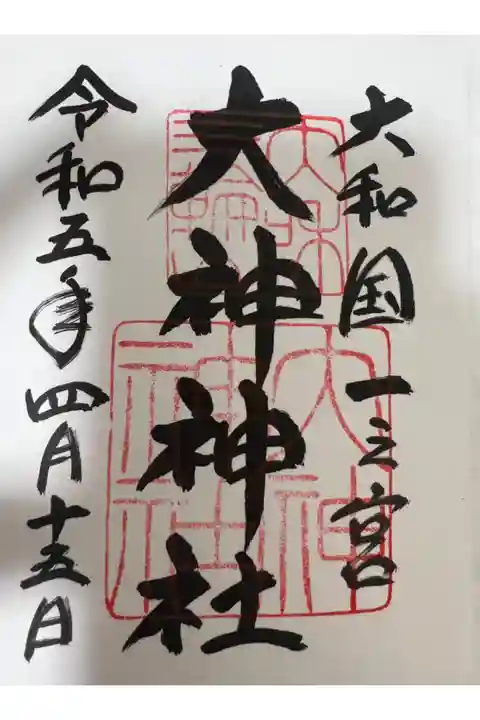 大和国一之宮
大神神社
令和五年四月十五日
大神神社